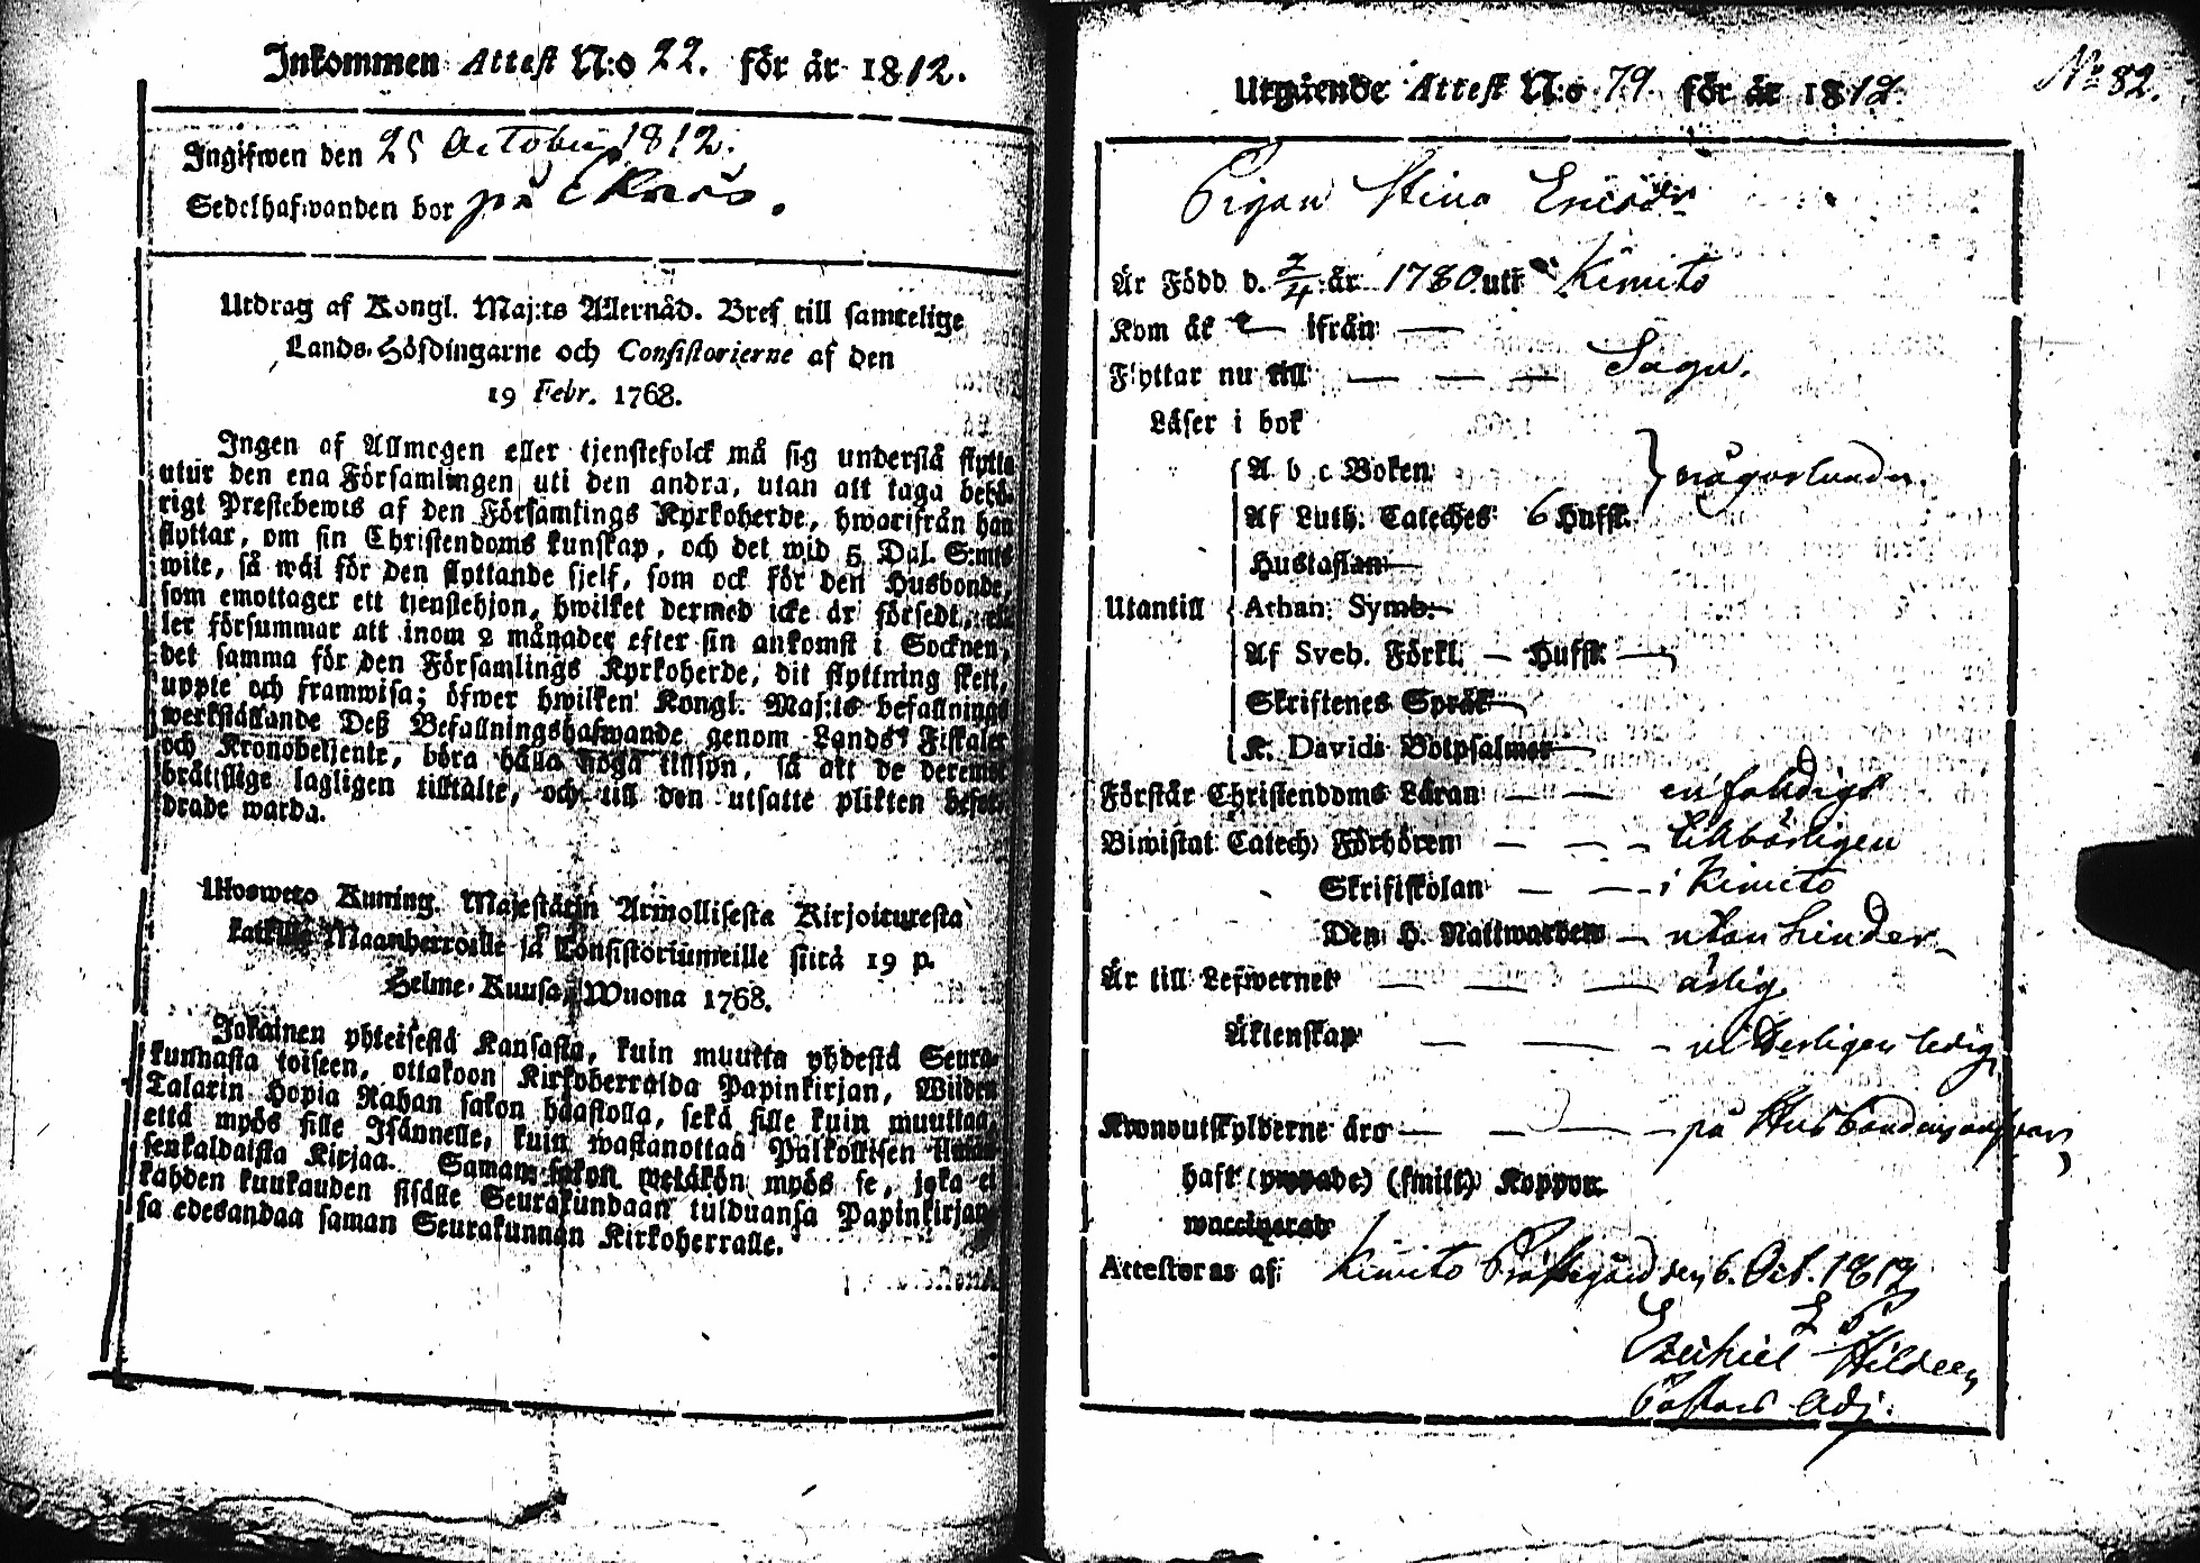 Inkommen Attest N:o 22. för år 1812.
Ingifwen den 25 October 1812.
Sedelhafwanden bor på Eknäs.
Utdrag af Kongl. Maj:ts Allernåd. Bref till samtelige
Lands-Höfdingarne och Consistorierne af den
19 Febr. 1768.
Ingen af Allmogen eller tjenstefolck må sig understå flytta
utur den ena Församlingen uti den andra, utan att taga behö-
rigt Prestebewis af den Församlings Kyrkoherde, hwarifrån han
flyttar, om sin Christendoms kunskap, och det wid 5 Dal. S:mts
wite, så wäl för den flyttande sjelf, som ock för den Husbonde,
som emottager ett tjenstehjon, hwilket dermed icke är försedt, el-
ler försummar att inom 2 månader efter sin ankomst i Socknen,
det samma för den Församlings Kyrkoherde, dit flyttning skett,
uppte och framwisa; öfwer hwilken Kongl. Maj:ts befallnings
werkställande Deß Befallningshafwande genom Lands Fiskaler
och Kronobetjente, böra hålla noga tillsyn, så att de deremot
brätslige lagligen tilltalte, och till den utsatte plikten befor-
drade warda.
Ulosweto Kuning. Majestätin Armollisesta Kirjoituresta
kaikille Maanherroille ja Consistoriumeille siitä 19 p.
Helme-Kuusa, Wuona 1768.
Jokainen yhteisestä Kansasta, kuin muutta yhdestä Seura-
kunnasta toiseen, ottakoon Kirkoherralda Papinkirjan, Wiiden
Talarin Hopia Rahan sakon haastolla, sekä sille kuin muuttaa,
että myös sille Isännelle, kuin wastanottaa Palkollisen ilman
senkaldaista Kirjaa. Saman sakon wetäkön myös se, joka ei
kahden kuukauden sisälle Seurakundaan tulduansa Papinkirjan-
sa edesandaa saman Seurakunnan Kirkoherralle.
Utgående Attest N:o 79. för år 1812.
No 82.
Pigan Stina Ericsdr
Är Född d. 2/4 år 1780 uti Kimito
Kom år — ifrån —
Flyttar nu till — — — Sagu.
Läser i bok
A b c Boken } någorlunda.
Af Luth. Cateches 6 Hufst.
Hustaflan —
Utantill Athan: Symb. —
Af Sveb. Förkl. — Hufst. —
Skriftenes Språk —
K. Davids Botpsalmer —
Förstår Christendoms Läran — — enfaldigt
Biwistat Catech. Förhören — — — tillbörligen
Skriftskolan — — i Kimito
Den H. Nattwarden — utan hinder
Är till Lefwernet — — — ärlig
Äktenskap — — — ledig
Kronoutskylderne äro — — — på Husbondens ansvar
haft (ympade) (smitt) Koppor
waccinerad
Attesteras af Kimito Prästegård den 6. Oct. 1812
Ezechiel Hildeen
Pastors Adj.